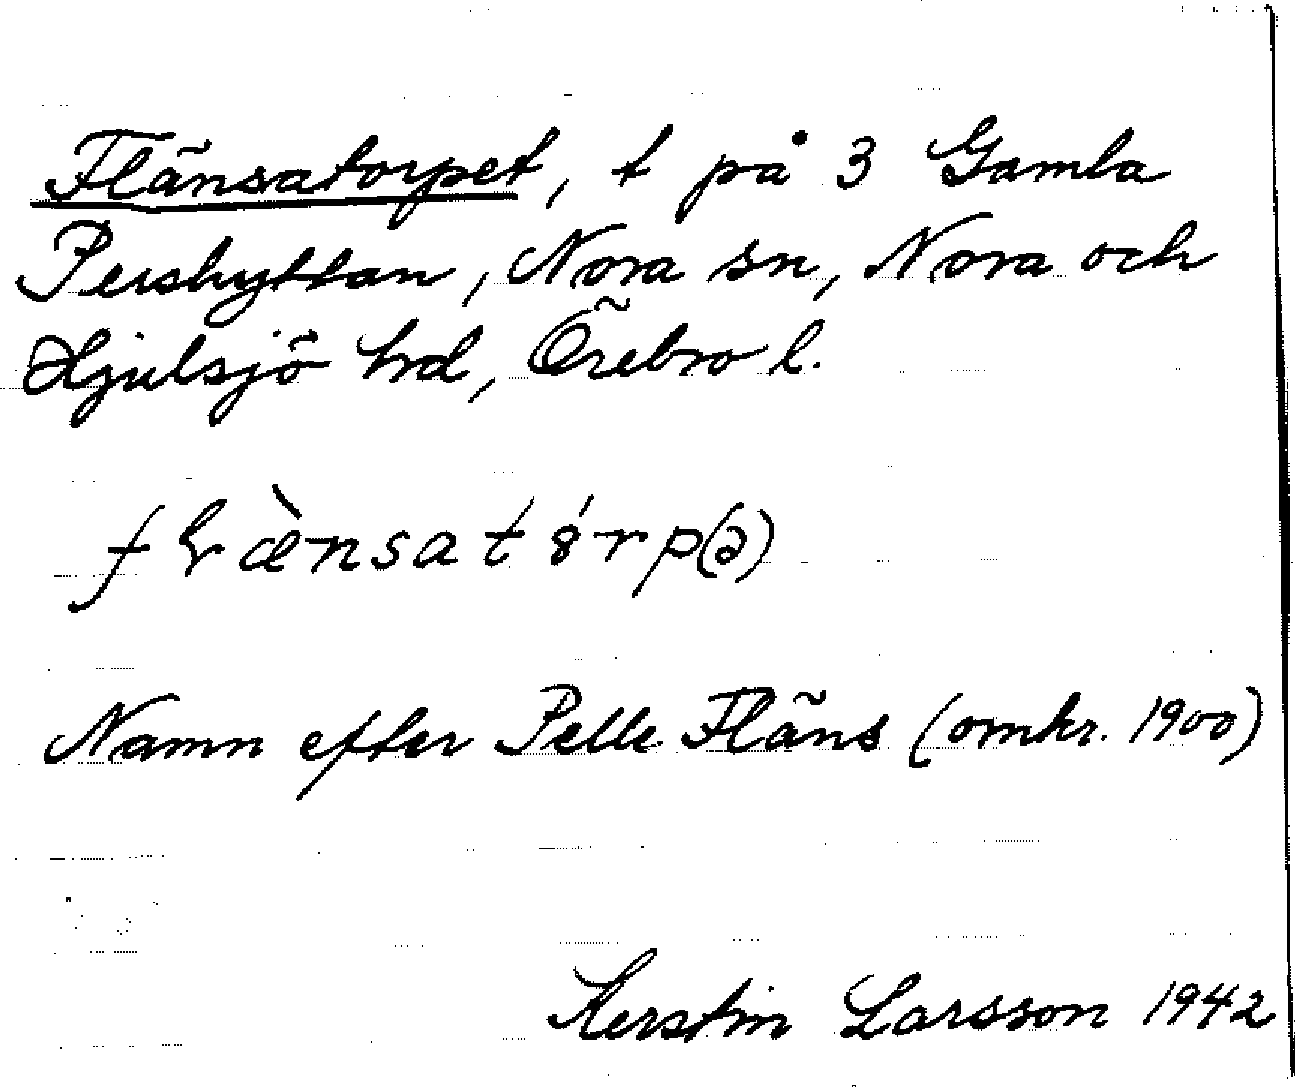 Flänsatorpet, t på 3 Gamla
Pershyttan, Nora sn, Nora och
Hjulsjö hd, Örebro l.
fɽæ̀nsatȯ́rp(ə)
Namn efter Pelle Fläns (omkr. 1900)
Kerstin Larsson 1942